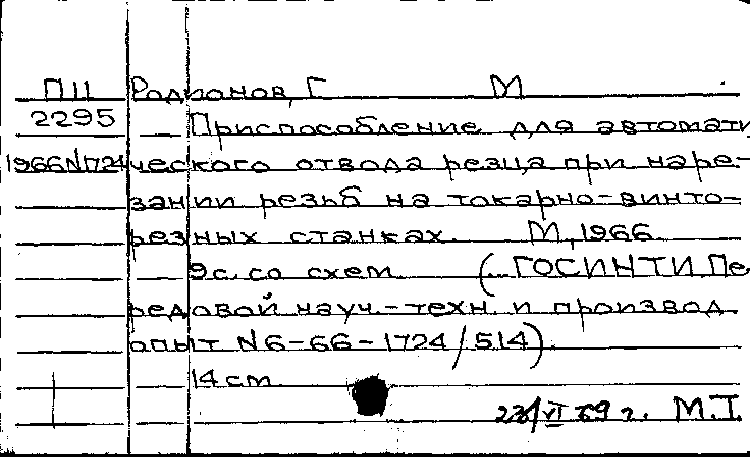 П11 Родионов, Г М
2295 Приспособление для автомати
1966N1724 ческого отвода резца при наре-
зании резьб на токарно-винто-
резных станках. М, 1966
9с. со схем. (ГОСИНТИ. Пе
редовой науч.-техн. и производ.
опыт N6-66-1724/514)
14 см.
69 г. М.Т.